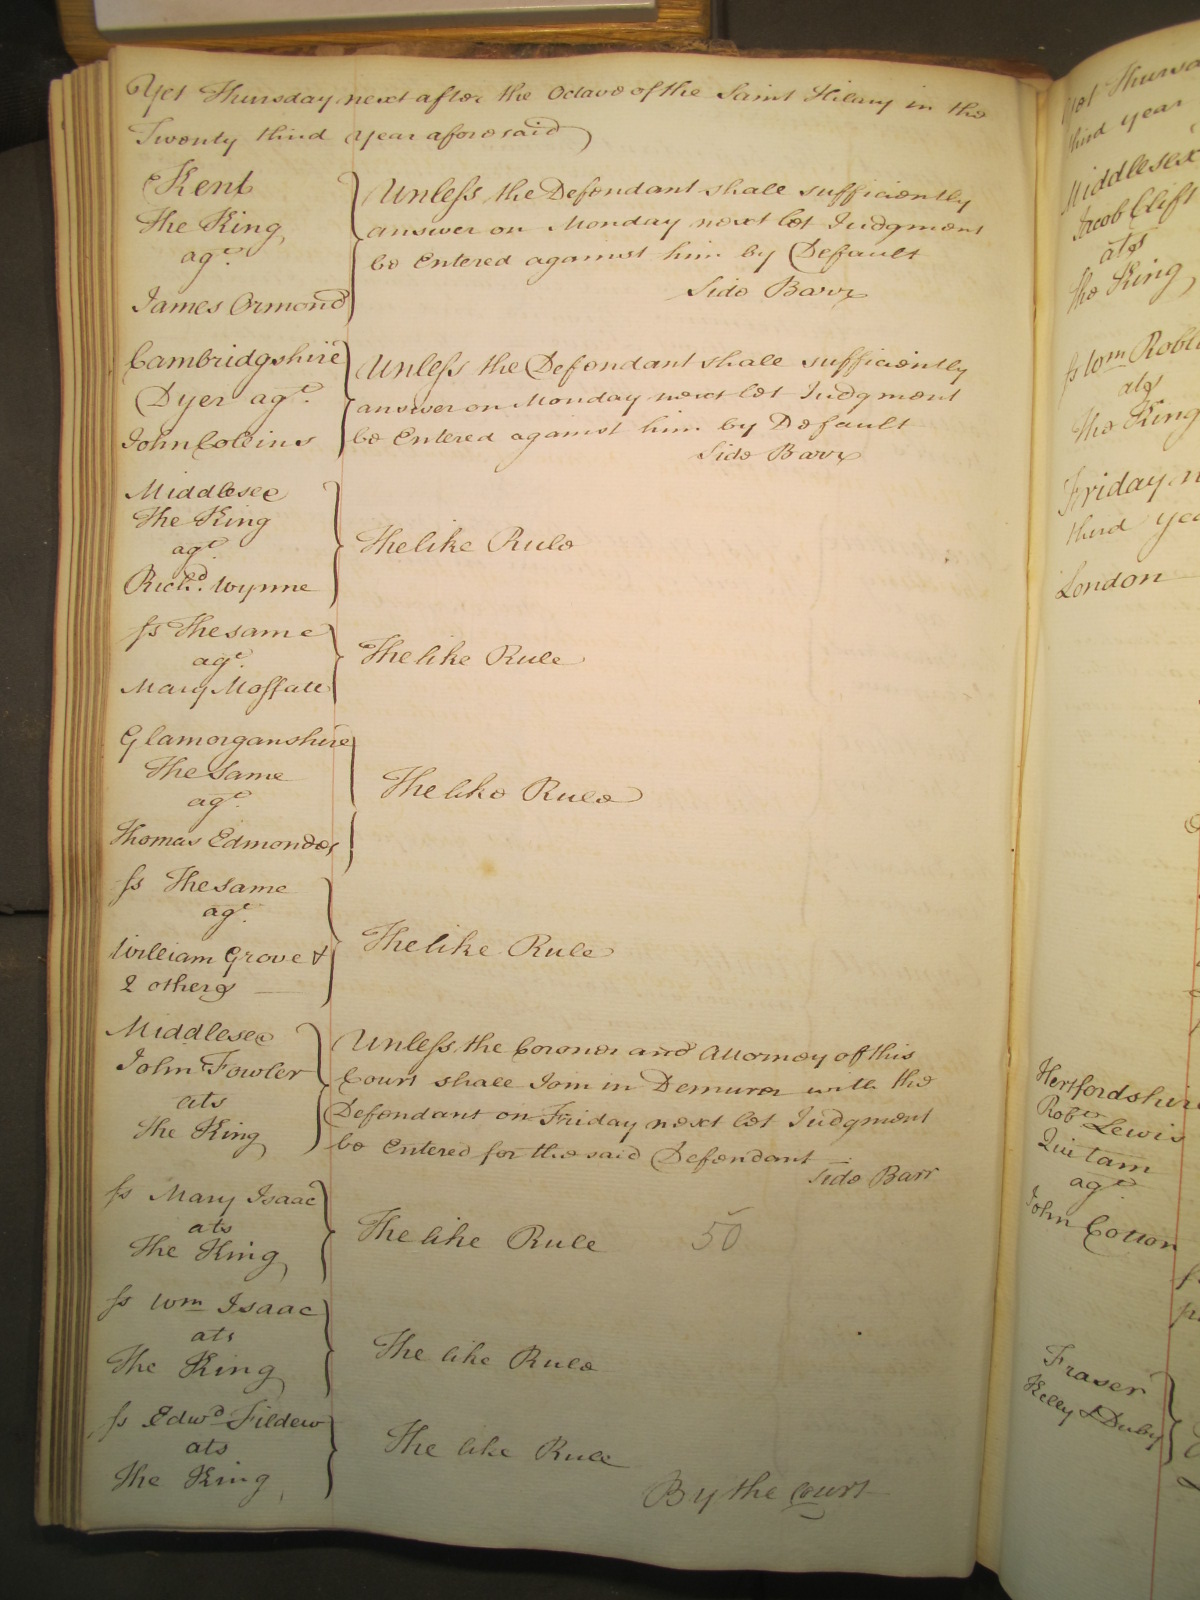 Yet Thursday next after the Octave of the Saint Hilary in the
Twenty third Year aforesaid
Kent
The King
agt.
James Ormond
Unless the Defendant shall sufficiently
answer on Monday next let Judgment
be Entered against him by Default
Side Barr
Cambridgshire
Dyer agt.
John Collins
Unless the Defendant shall sufficiently
answer on Monday next let Judgment
be Entered against him by Default
Side Barr
Middlesex
The King
agt.
Richd. Wynne
The like Rule
ss The same
agt.
Mary Moffatt
The like Rule
Glamorganshire
The Same
agt.
Thomas Edmondes
The like Rule
ss The same
agt.
William Grove &
2 others
The like Rule
Middlesex
John Fowler
ats
The King
Unless the Coroner and Attorney of this
Court shall Join in Demurer with the
Defendant on Friday next let Judgment
be Entered for the said Defendant
Side Barr
ss Mary Isaac
ats
The King
The like Rule
50
ss Wm Isaac
ats
The King
The like Rule
ss Edwd Fildew
ats
The King
The like Rule
By the Court
Yet Thursd
third year
Middlesex
Jacob Clift
ats
The King
ss Wm Robi
ats
The King
Friday n
third yea
London
Hertfordshire
Robt Lewis
Qui tam
agt.
John Cotton
Fraser
Kelly & Duby